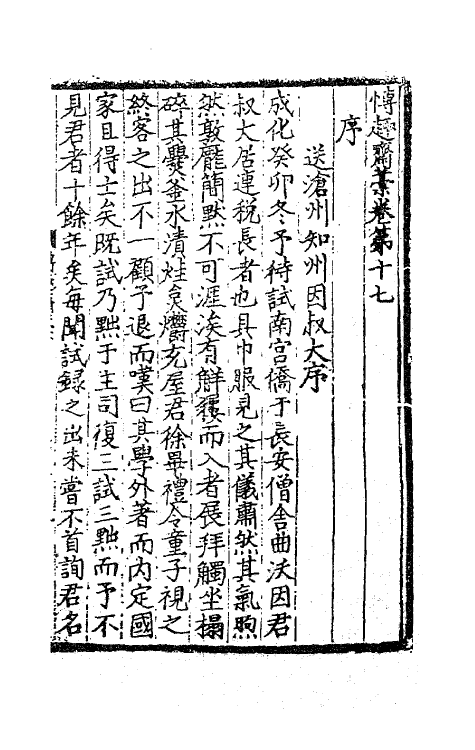 博趣齋藁卷第十七
序
送滄州知州因叔大序
成化癸卯冬予待試南宮僑于長安僧舍曲沃因君
叔大居連稅長者也具巾服見之其儀肅然其氣煦
然敦龐簡默不可涯涘有觧獶而入者展拜觸坐榻
碎其爨釜水漬炷炱爝充屋君徐畢禮令童子視之
終客之出不一顧予退而嘆曰其學外著而内定國
家且得士矣既試乃黜于主司復三試三黜而予不
見君者十餘年矣每聞試錄之出未嘗不首詢君名